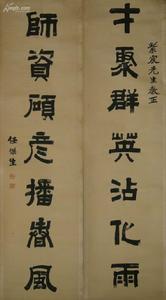 先生教正
才聚群英沾化雨
師資碩彥播春風